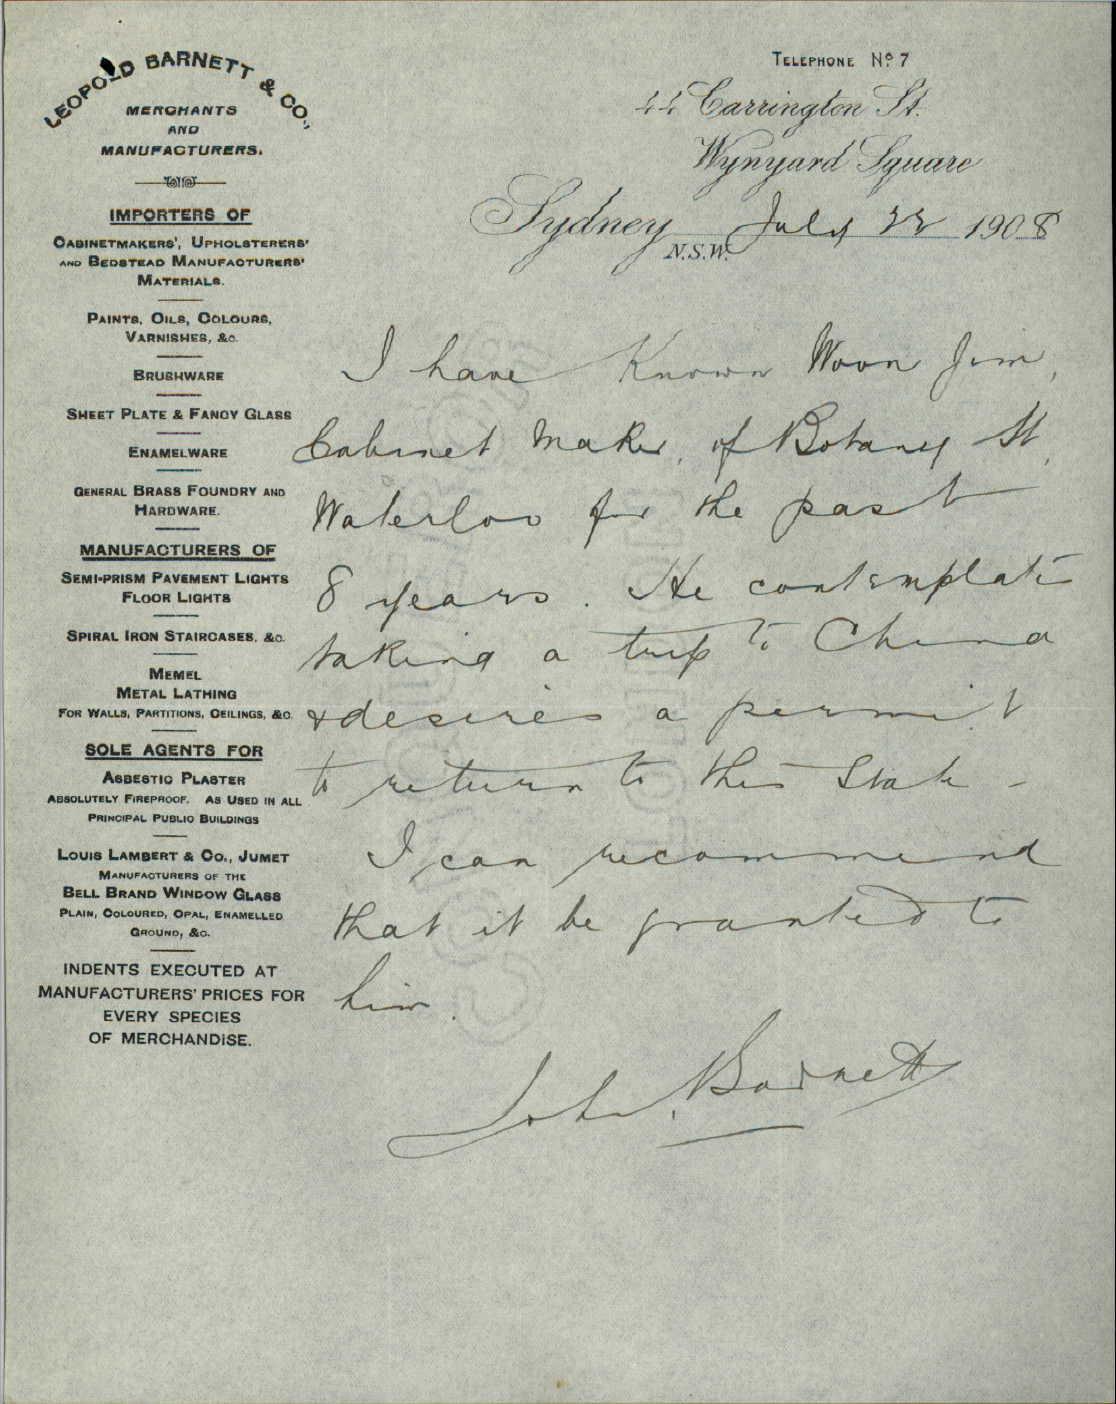 LEOPOLD BARNETT & CO.,
MERCHANTS
AND
MANUFACTURERS.
IMPORTERS OF
CABINETMAKERS', UPHOLSTERERS'
AND BEDSTEAD MANUFACTURERS'
MATERIALS.
PAINTS, OILS, COLOURS,
VARNISHES, &c.
BRUSHWARE
SHEET PLATE & FANCY GLASS
ENAMELWARE
GENERAL BRASS FOUNDRY AND
HARDWARE.
MANUFACTURERS OF
SEMI-PRISM PAVEMENT LIGHTS
FLOOR LIGHTS
SPIRAL IRON STAIRCASES, &c.
MEMEL
METAL LATHING
FOR WALLS, PARTITIONS, CEILINGS, &c.
SOLE AGENTS FOR
ASBESTIC PLASTER
ABSOLUTELY FIREPROOF. AS USED IN ALL
PRINCIPAL PUBLIC BUILDINGS
LOUIS LAMBERT & CO., JUMET
MANUFACTURERS OF THE
BELL BRAND WINDOW GLASS
PLAIN, COLOURED, OPAL, ENAMELLED
GROUND, &c.
INDENTS EXECUTED AT
MANUFACTURERS' PRICES FOR
EVERY SPECIES
OF MERCHANDISE.
TELEPHONE No. 7
44 Carrington St.
Wynyard Square
Sydney July 22 1908
N.S.W.
I have Known Woon Jim,
Cabinet Maker, of Botany St,
Waterloo for the past
8 years. He contemplates
taking a trip to China
& desires a permit
to return to this State -
I can recommend
that it be granted to
him.
John Barnett